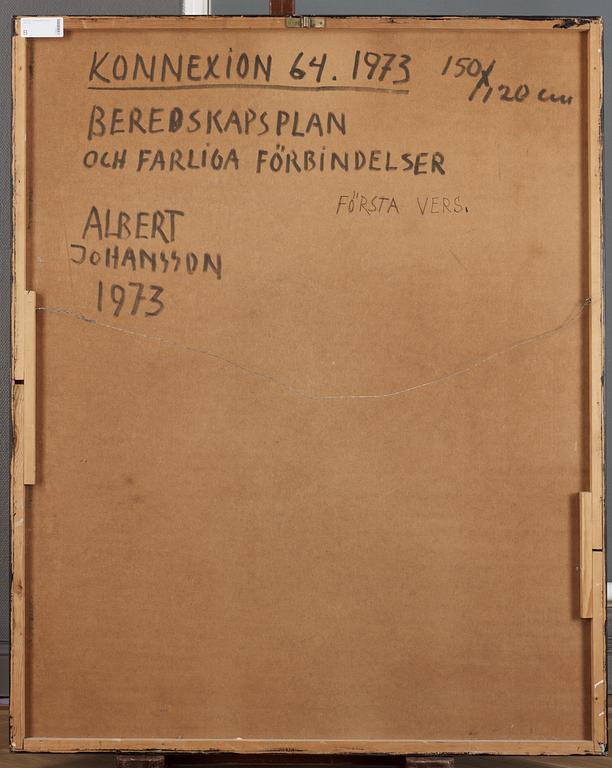 KONNEXION 64. 1973 150/120 cm
BEREDSKAPSPLAN
OCH FARLIGA FÖRBINDELSER
FÖRSTA VERS.
ALBERT
JOHANSSON
1973